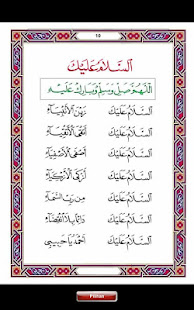 ١٥
اَلسَّلَامُ عَلَيْكَ
اَللّٰهُمَّ صَلِّ وَسَلِّمْ وَبَارِكْ عَلَيْهِ
اَلسَّلَامُ عَلَيْكَ زَيْنَ الْأَنْبِيَآءِ
اَلسَّلَامُ عَلَيْكَ أَتْقَى الْأَتْقِيَآءِ
اَلسَّلَامُ عَلَيْكَ أَصْفَى الْأَصْفِيَآءِ
اَلسَّلَامُ عَلَيْكَ أَزْكَى الْأَزْكِيَآءِ
اَلسَّلَامُ عَلَيْكَ مِنْ رَبِّ السَّمَآءِ
اَلسَّلَامُ عَلَيْكَ دَائِمًا بِلَا انْقِضَآءِ
اَلسَّلَامُ عَلَيْكَ أَحْمَدُ يَا حَبِيْبِيْ
Pilihan